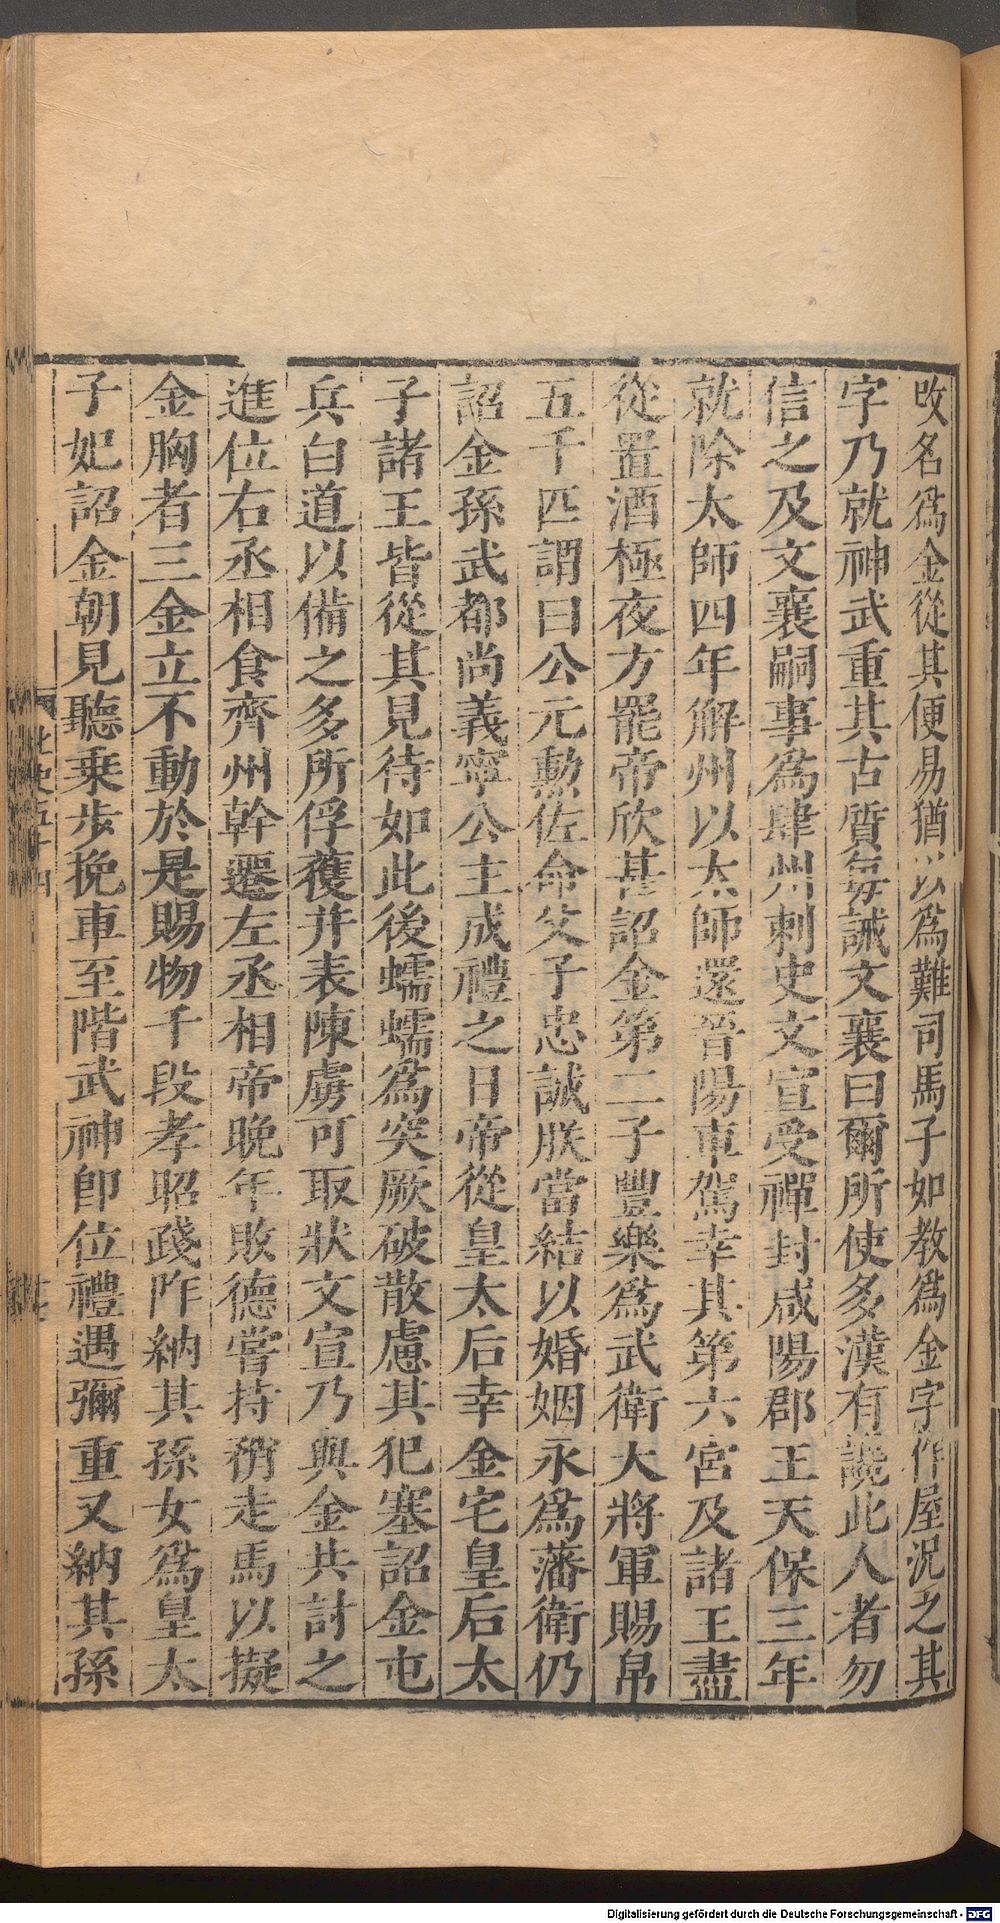 改名爲金從其便易猶以爲難司馬子如教爲金字作屋況之其
字乃就神武重其古質每誡文襄曰爾所使多漢有讒此人者勿
信之及文襄嗣事爲肆州刺史文宣受禪封咸陽郡王天保三年
就除太師四年解州以太師還晉陽車駕幸其第六宮及諸王盡
從置酒極夜方罷帝欣甚詔金第二子豐樂爲武衛大將軍賜帛
五千匹謂曰公元勲佐命父子忠誠朕當結以婚姻永爲藩衛仍
詔金孫武都尚義寧公主成禮之日帝從皇太后幸金宅皇后太
子諸王皆從其見待如此後蠕蠕爲突厥破散慮其犯塞詔金屯
兵白道以備之多所俘獲并表陳虜可取狀文宣乃與金共討之
進位右丞相食齊州幹遷左丞相帝晚年敗德嘗持矟走馬以擬
金胸者三金立不動於是賜物千段孝昭踐阼納其孫女爲皇太
子妃詔金朝見聽乗步挽車至階武神卽位禮遇彌重又納其孫
Digitalisierung gefördert durch die Deutsche Forschungsgemeinschaft - DFG